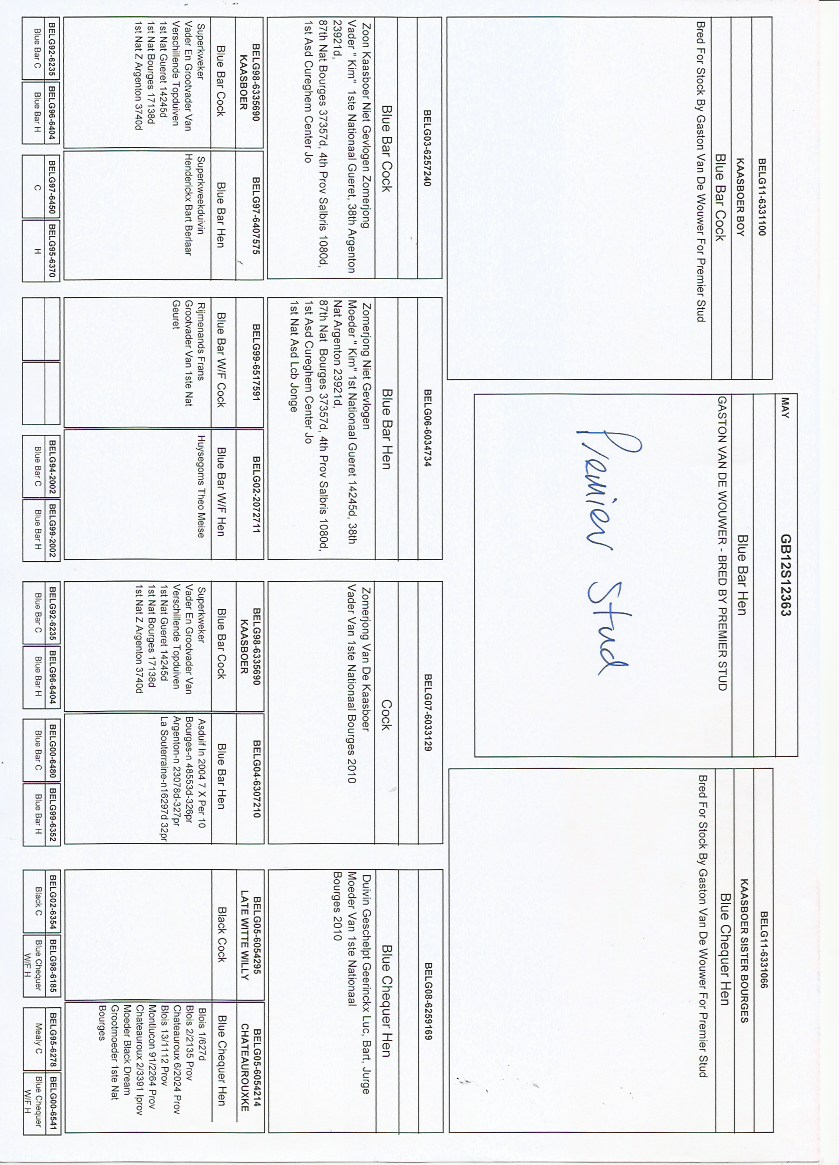 MAY
GB12S12363
Blue Bar Hen
GASTON VAN DE WOUWER - BRED BY PREMIER STUD
Premier Stud
BELG11-6331100
KAASBOER BOY
Blue Bar Cock
Bred For Stock By Gaston Van De Wouwer For Premier Stud
BELG11-6331066
KAASBOER SISTER BOURGES
Blue Chequer Hen
Bred For Stock By Gaston Van De Wouwer For Premier Stud
BELG03-6257240
Blue Bar Cock
Zoon Kaasboer Niet Gevlogen Zomerjong
Vader " Kim" 1ste Nationaal Gueret, 38th Argenton
23921d,
87th Nat Bourges 37357d, 4th Prov Salbris 1080d,
1st Asd Cureghem Center Jo
BELG06-6034734
Blue Bar Hen
Zomerjong Niet Gevlogen
Moeder " Kim" 1st Nationaal Gueret 14245d, 38th
Nat Argenton 23921d,
87th Nat Bourges 37357d, 4th Prov Salbris 1080d,
1st Asd Cureghem Center Jo
1st Nat Asd Lcb Jonge
BELG07-6033129
Cock
Zomerjong Van De Kaasboer
Vader Van 1ste Nationaal Bourges 2010
BELG08-6259169
Blue Chequer Hen
Duivin Geschelpt Geerinckx Luc, Bart, Jurge
Moeder Van 1ste Nationaal
Bourges 2010
BELG98-6335690
KAASBOER
Blue Bar Cock
Superkweker
Vader En Grootvader Van
Verschillende Topduiven
1st Nat Gueret 14245d
1st Nat Bourges 17138d
1st Nat Z Argenton 3740d
BELG97-6407575
Blue Bar Hen
Superkweekduivin
Henderickx Bart Berlaar
BELG99-6517591
Blue Bar W/F Cock
Rijmenands Frans
Grootvader Van 1ste Nat
Geuret
BELG02-2072711
Blue Bar W/F Hen
Huysegoms Theo Meise
BELG98-6335690
KAASBOER
Blue Bar Cock
Superkweker
Vader En Grootvader Van
Verschillende Topduiven
1st Nat Gueret 14245d
1st Nat Bourges 17138d
1st Nat Z Argenton 3740d
BELG04-6307210
Blue Bar Hen
Asduif In 2004 7 X Per 10
Bourges-n 48553d-326pr
Argenton-n 23078d-327pr
La Souterraine-n16297d 32pr
BELG05-6054295
LATE WITTE WILLY
Black Cock
BELG05-6054214
CHATEAUROUXKE
Blue Chequer Hen
Blois 1/627d
Blois 2/2135 Prov
Chateauroux 6/2024 Prov
Blois 13/1112 Prov
Montlucon 91/2264 Prov
Chateauroux 2/3391 Iprov
Moeder Black Dream
Grootmoeder 1ste Nat
Bourges
BELG92-6235
Blue Bar C
BELG96-6404
Blue Bar H
BELG97-6450
C
BELG95-6370
H
BELG94-2002
Blue Bar C
BELG99-2002
Blue Bar H
BELG92-6235
Blue Bar C
BELG96-6404
Blue Bar H
BELG00-6480
Blue Bar C
BELG99-6352
Blue Bar H
BELG02-6354
Black C
BELG98-6185
Blue Chequer
W/F H
BELG95-6278
Mealy C
BELG00-6541
Blue Chequer
W/F H